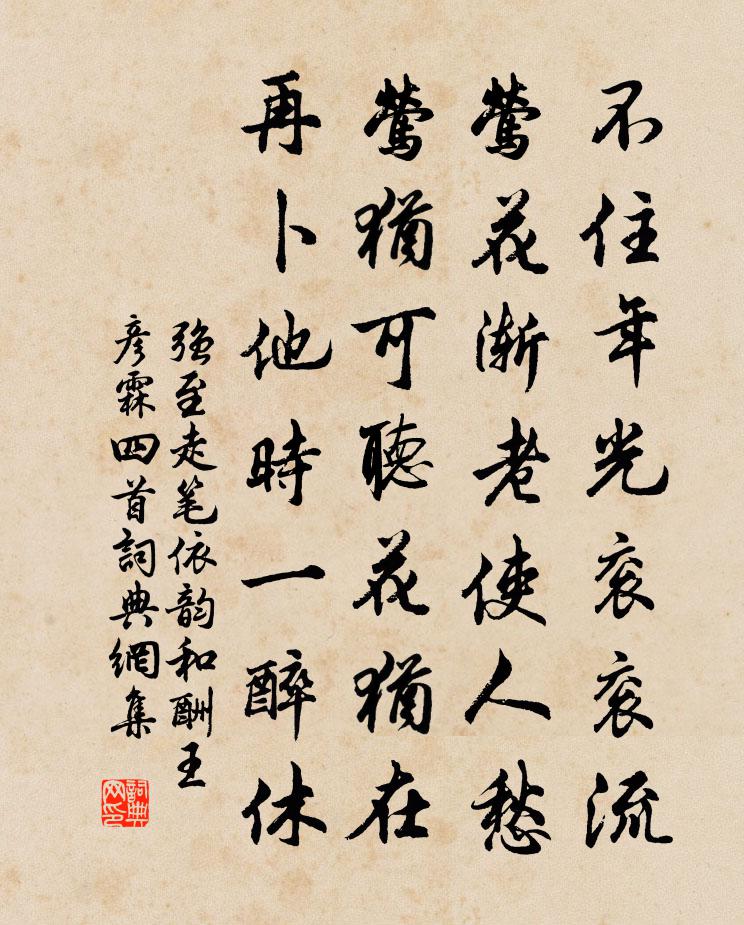 不住年光衮衮流
莺花渐老使人愁
莺犹可聽花犹在
再卜他時一醉休
强至走笔依韵和酬王
彦霖四首詞典網集
詞典网印